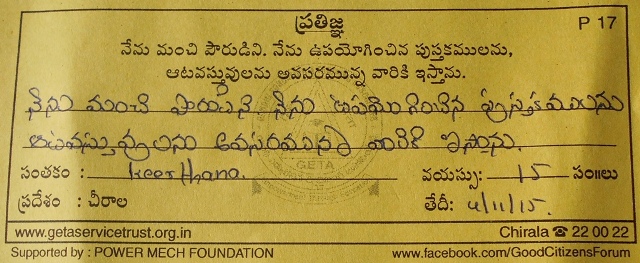 ప్రతిజ్ఞ P 17
నేను మంచి పౌరుడిని. నేను ఉపయోగించిన పుస్తకములను,
ఆటవస్తువులను అవసరమున్న వారికి ఇస్తాను.
నేను మంచి పౌరుడిని నేను ఉపయోగించిన పుస్తకములను
ఆటవస్తువులను అవసరమున్న వారికి ఇస్తాను.
GETA
సంతకం : Keerthana. వయస్సు: 15 సం॥లు
ప్రదేశం : చీరాల తేదీ: 4/11/15.
www.getaservicetrust.org.in Chirala ☎ 22 00 22
Supported by : POWER MECH FOUNDATION www.facebook.com/GoodCitizensForum